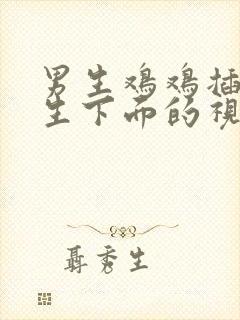 男生鸡鸡插
生下面的視
聶秀生